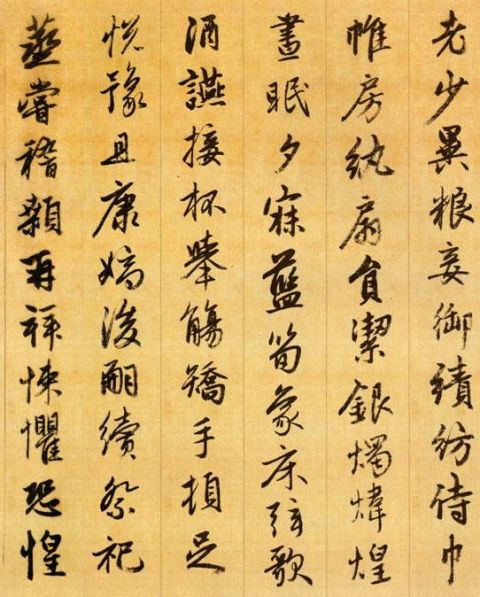 老少異粮妾御績紡侍巾
帷房紈扇員潔銀燭煒煌
晝眠夕寐藍筍象床弦歌
酒讌接杯舉觴矯手頓足
悅豫且康嫡後嗣續祭祀
蒸嘗稽顙再拜悚懼恐惶